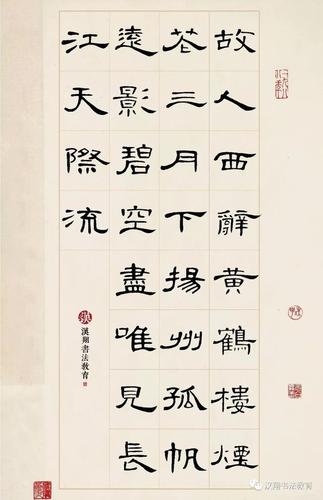 故人西辭黃鶴樓煙
花三月下揚州孤帆
遠影碧空盡唯見長
江天際流
漢翔書法教育
汉翔书法教育